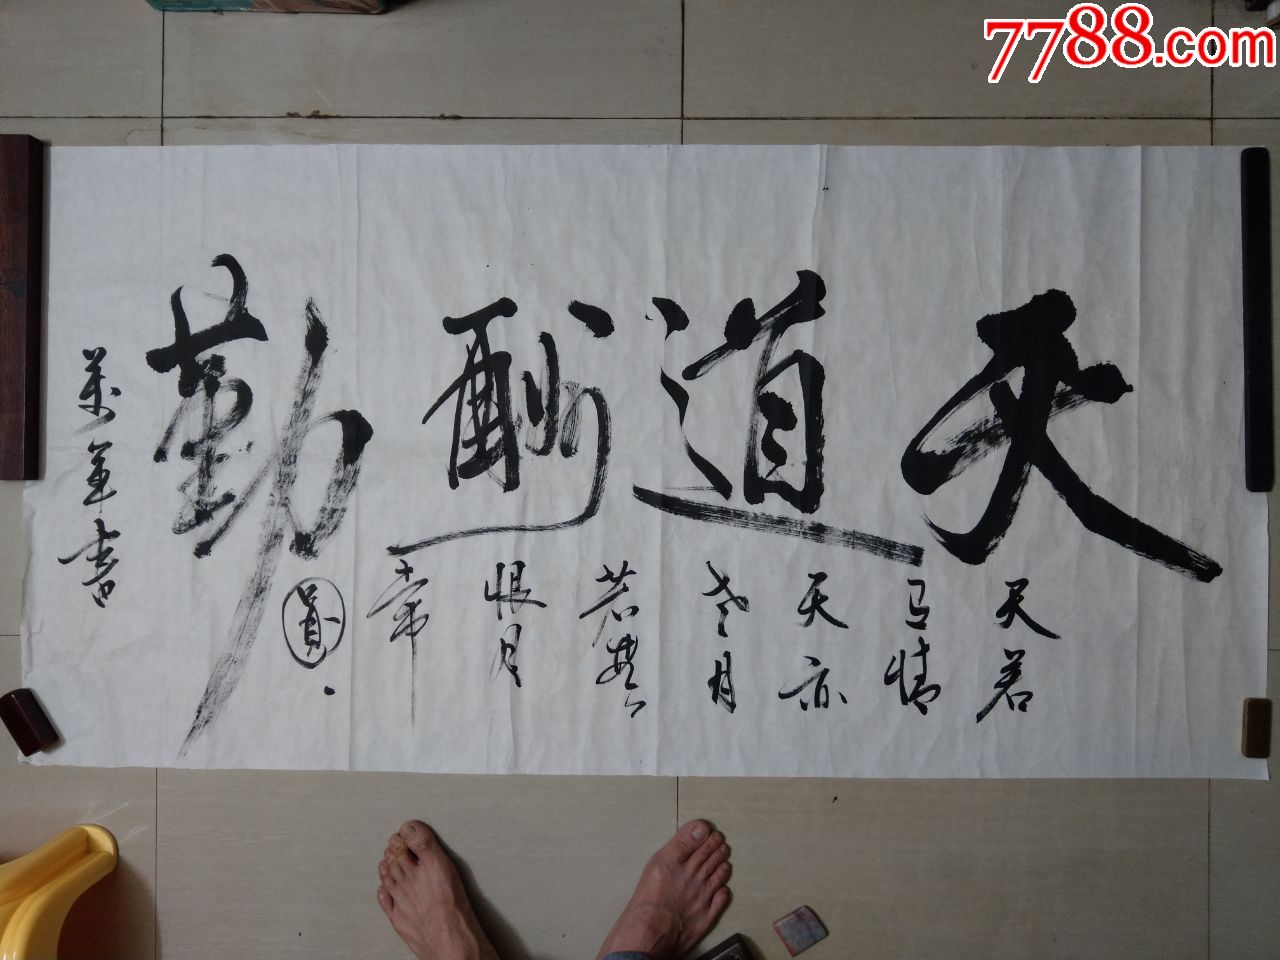 7788.com
天道酬勤
天若
有情
天亦
老月
若無
恨月
常
圓
萬年書